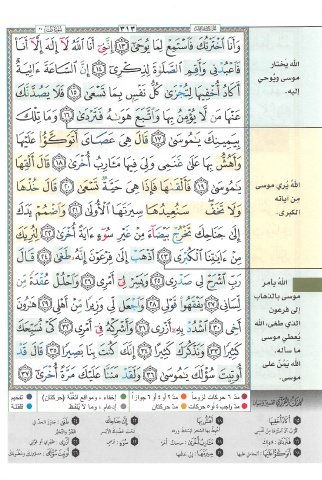 ٣١٣
وَأَنَا ٱخْتَرْتُكَ فَٱسْتَمِعْ لِمَا يُوحَىٰٓ ﴿١٣﴾ إِنَّنِىٓ أَنَا ٱللَّهُ لَآ إِلَٰهَ إِلَّآ أَنَا۠
فَٱعْبُدْنِى وَأَقِمِ ٱلصَّلَوٰةَ لِذِكْرِىٓ ﴿١٤﴾ إِنَّ ٱلسَّاعَةَ ءَاتِيَةٌ
أَكَادُ أُخْفِيهَا لِتُجْزَىٰ كُلُّ نَفْسٍۭ بِمَا تَسْعَىٰ ﴿١٥﴾ فَلَا يَصُدَّنَّكَ
عَنْهَا مَن لَّا يُؤْمِنُ بِهَا وَٱتَّبَعَ هَوَىٰهُ فَتَرْدَىٰ ﴿١٦﴾ وَمَا تِلْكَ
بِيَمِينِكَ يَٰمُوسَىٰ ﴿١٧﴾ قَالَ هِىَ عَصَاىَ أَتَوَكَّؤُا۟ عَلَيْهَا
وَأَهُشُّ بِهَا عَلَىٰ غَنَمِى وَلِىَ فِيهَا مَـَٔارِبُ أُخْرَىٰ ﴿١٨﴾ قَالَ أَلْقِهَا
يَٰمُوسَىٰ ﴿١٩﴾ فَأَلْقَىٰهَا فَإِذَا هِىَ حَيَّةٌ تَسْعَىٰ ﴿٢٠﴾ قَالَ خُذْهَا
وَلَا تَخَفْ سَنُعِيدُهَا سِيرَتَهَا ٱلْأُولَىٰ ﴿٢١﴾ وَٱضْمُمْ يَدَكَ
إِلَىٰ جَنَاحِكَ تَخْرُجْ بَيْضَآءَ مِنْ غَيْرِ سُوٓءٍ ءَايَةً أُخْرَىٰ ﴿٢٢﴾ لِنُرِيَكَ
مِنْ ءَايَٰتِنَا ٱلْكُبْرَى ﴿٢٣﴾ ٱذْهَبْ إِلَىٰ فِرْعَوْنَ إِنَّهُۥ طَغَىٰ ﴿٢٤﴾ قَالَ
رَبِّ ٱشْرَحْ لِى صَدْرِى ﴿٢٥﴾ وَيَسِّرْ لِىٓ أَمْرِى ﴿٢٦﴾ وَٱحْلُلْ عُقْدَةً مِّن
لِّسَانِى ﴿٢٧﴾ يَفْقَهُوا۟ قَوْلِى ﴿٢٨﴾ وَٱجْعَل لِّى وَزِيرًا مِّنْ أَهْلِى ﴿٢٩﴾ هَٰرُونَ
أَخِى ﴿٣٠﴾ ٱشْدُدْ بِهِۦٓ أَزْرِى ﴿٣١﴾ وَأَشْرِكْهُ فِىٓ أَمْرِى ﴿٣٢﴾ كَىْ نُسَبِّحَكَ
كَثِيرًا ﴿٣٣﴾ وَنَذْكُرَكَ كَثِيرًا ﴿٣٤﴾ إِنَّكَ كُنتَ بِنَا بَصِيرًا ﴿٣٥﴾ قَالَ قَدْ
أُوتِيتَ سُؤْلَكَ يَٰمُوسَىٰ ﴿٣٦﴾ وَلَقَدْ مَنَنَّا عَلَيْكَ مَرَّةً أُخْرَىٰٓ ﴿٣٧﴾
الله يختار
موسى ويُوحي
إليه.
الله يُري موسى
من آياته
الكبرى.
الله يأمر
موسى بالذهاب
إلى فرعون
الذي طغى، الله
يُعطي موسى
ما سأله.
الله يَمُنّ على
موسى.
مدّ ٦ حركات لزوماً
مدّ ٢ أو ٤ أو ٦ جوازاً
إخفاء، ومواقع الغُنَّة (حركتان)
تفخيم
مدّ واجب ٤ أو ٥ حركات
مدّ حركتان
إدغام، وما لا يُلفَظ
قلقلة